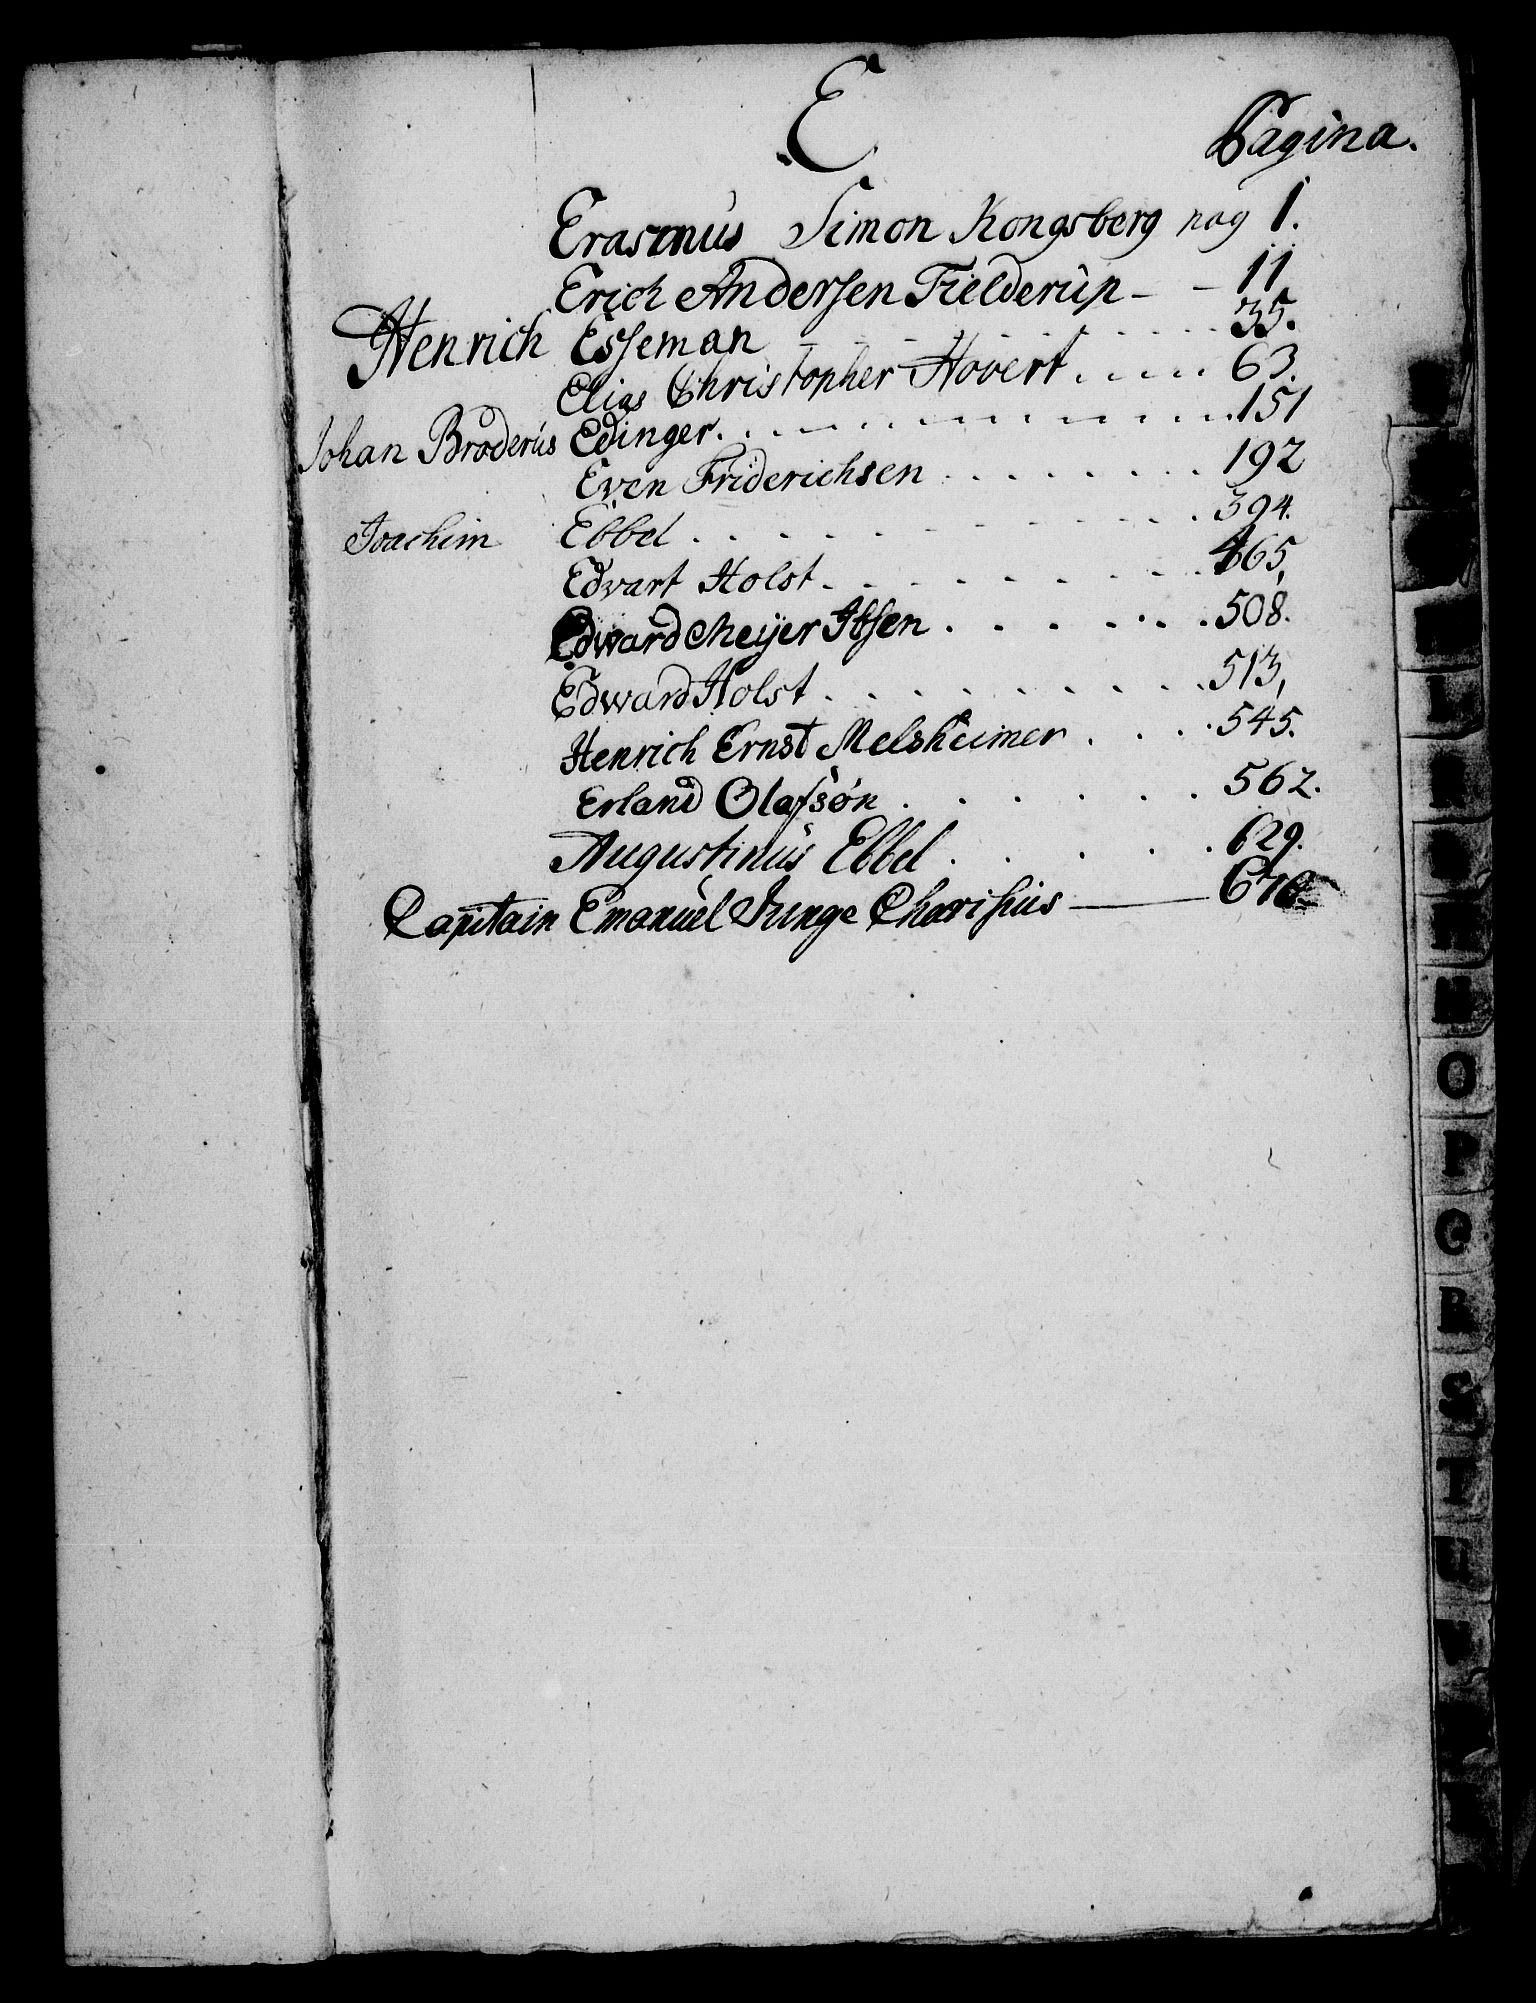 E
Pagina.
Erasmus Simon Kongsberg pag 1.
Erich Andersen Fielderup - - 11
Henrich Esseman . . . . . . . . . 35.
Elias Christopher Hövert . . . . . 63.
Johan Broderus Edinger. . . . . . . . . . . . 151
Even Friderichsen . . . . . . . . . 192
Joachim Ebbel . . . . . . . . . . . 394.
Edvart Holst . . . . . . . . . . 465,
Edward Meyer Ibsen . . . . . . . 508.
Edward Holst . . . . . . . . . . 513,
Henrich Ernst Melsheimer . . . . 545.
Erland Olafsøn . . . . . . 562.
Augustinus Ebbel . . . . . 629.
Capitain Emanuel Junge Charisius —— 670
L
N
O
P
R
S
T